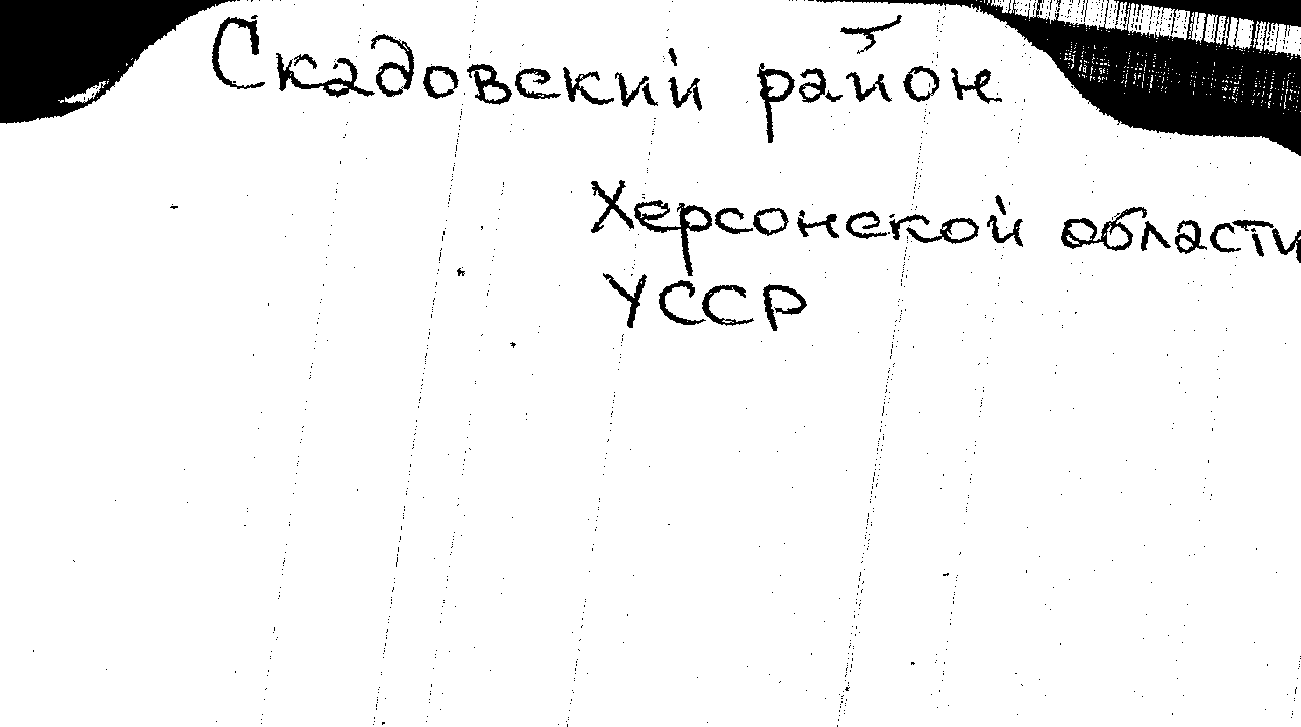 Скадовский район
Херсонской области
УССР